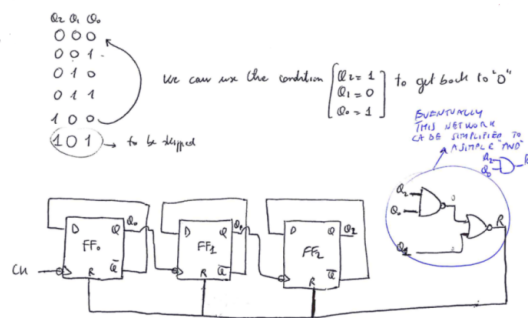 Q₂ Q₁ Q₀
0 0 0
0 0 1
0 1 0
0 1 1
1 0 0
1 0 1 → to be skipped
We can use the condition [Q₂=1 Q₁=0 Q₀=1] to get back to "0"
EVENTUALLY
THIS NETWORK
CA BE SIMPLIFIED TO
A SIMPLE "AND"
Q₂
Q₀
R
Q₂
Q₀
0
Q₁
0
R
D Q Q₀
FF₀
CLK
R Q̅
D Q Q₁
FF₁
R Q̅
D Q Q₂
FF₂
R Q̅